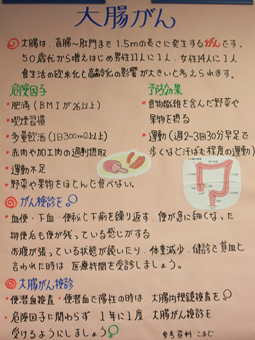 大腸がん
大腸は、盲腸〜肛門まで1.5mの長さに発生するがんです。
50歳代から増えはじめ男性11人に1人、女性14人に1人
食生活の欧米化と高齢化の影響が大きいと考えられます。
危険因子
・肥満(BMIが26以上)
・喫煙習慣
・多量飲酒(1日300ml以上)
・赤肉や加工肉の過剰摂取
・運動不足
・野菜や果物をほとんど食べない。
予防効果
・食物繊維を含んだ野菜や
果物を摂る
・運動(週2〜3回30分早足で
歩くなど汗ばむ程度の運動)
がん検診を
・血便・下血・便秘と下痢を繰り返す・便が急に細くなった
排便後も便が残っている感じがする
お腹が張っている状態が続いたり、体重減少、健診で貧血と
言われた時は医療機関を受診しましょう。
大腸がん検診
・便潜血検査・便潜血で陽性の時は大腸内視鏡検査を
・危険因子に関わらず1年に1度大腸がん検診を
受けるようにしましょう
参考資料